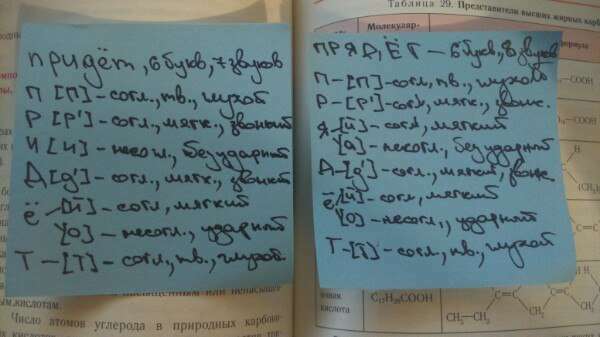 придёт, 6 букв, 7 звуков
П [П] - согл., тв., глухой
Р [Р'] - согл., мягк., звонкий
И [И] - несогл., безударный
Д [д'] - согл., мягк., звонкий
ё - [й] - согл, мягкий
[о] - несогл., ударный
Т - [Т] - согл., тв., глухой.
Число атомов углерода в природных карбоно-
Таблица 29. Представители высших жирных карб
Молекуляр-
формула
ПРЯД,ЁТ - 6 букв, 8 звуков
П - [П] - согл, тв., глухой
Р - [Р'] - согл, мягк., звонк.
Я - [й] - согл, мягкий
[а] - несогл., безударный
Д - [д'] - согл., мягкий, звонк.
ё - [й] - согл., мягкий
[о] - несогл., ударный
Т - [Т] - согл., тв., глухой
COOH
C=C
C=C
CH₂
CH₂—CH₂